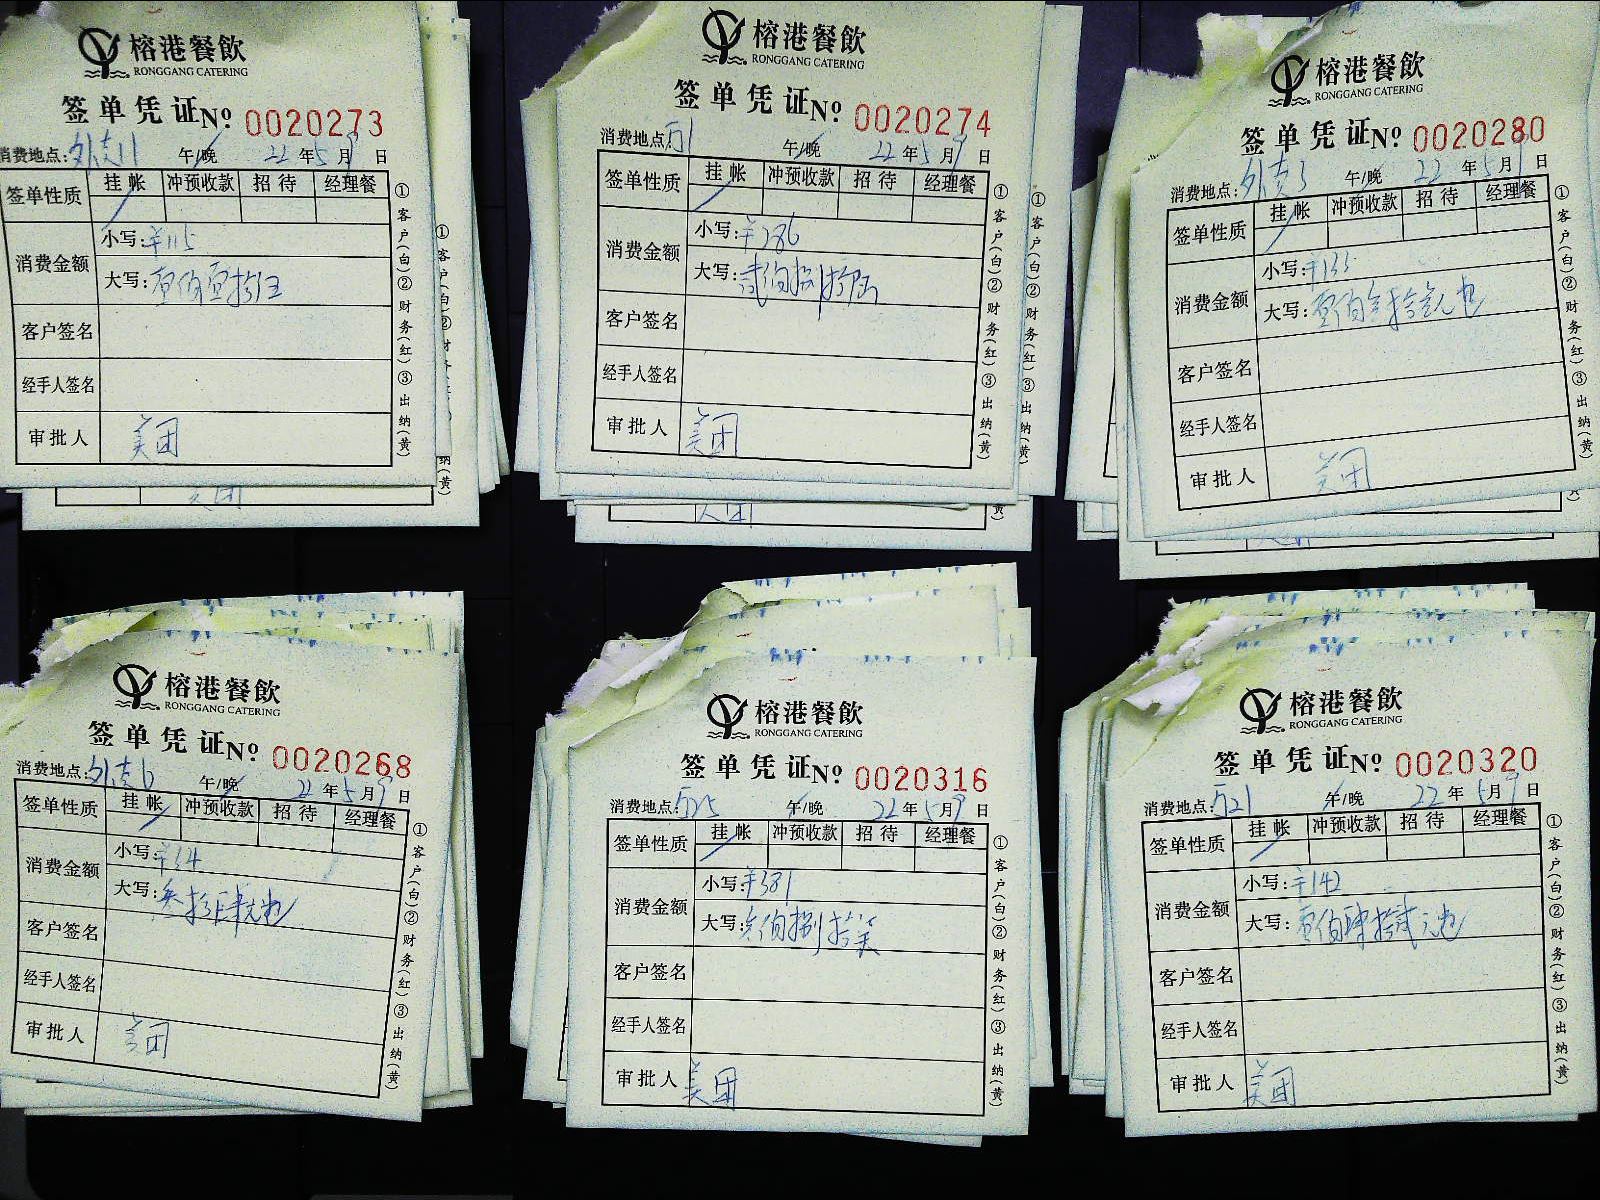 榕港餐飲
RONGGANG CATERING
签单凭证 No 0020273
消费地点:外卖11 午/晚 22年5月9日
签单性质 挂帐 冲预收款 招待 经理餐
消费金额 小写:¥115
大写:壹佰壹拾伍
客户签名
经手人签名
审批人 美团
①客户(白)②财务(红)③出纳(黄)
榕港餐飲
RONGGANG CATERING
签单凭证 No 0020274
消费地点: 午/晚 22年5月9日
签单性质 挂帐 冲预收款 招待 经理餐
消费金额 小写:¥286
大写:贰佰捌拾陆
客户签名
经手人签名
审批人 美团
①客户(白)②财务(红)③出纳(黄)
榕港餐飲
RONGGANG CATERING
签单凭证 No 0020280
消费地点:外卖3 午/晚 22年5月9日
签单性质 挂帐 冲预收款 招待 经理餐
消费金额 小写:
大写:
客户签名
经手人签名
审批人 美团
①客户(白)②财务(红)③出纳(黄)
榕港餐飲
RONGGANG CATERING
签单凭证 No 0020268
消费地点:外卖6 午/晚 22年5月9日
签单性质 挂帐 冲预收款 招待 经理餐
消费金额 小写:¥34
大写:叁拾肆元也
客户签名
经手人签名
审批人 美团
①客户(白)②财务(红)③出纳(黄)
榕港餐飲
RONGGANG CATERING
签单凭证 No 0020316
消费地点: 午/晚 22年5月9日
签单性质 挂帐 冲预收款 招待 经理餐
消费金额 小写:¥381
大写:叁佰捌拾
客户签名
经手人签名
审批人 美团
①客户(白)②财务(红)③出纳(黄)
榕港餐飲
RONGGANG CATERING
签单凭证 No 0020320
消费地点: 午/晚 22年5月9日
签单性质 挂帐 冲预收款 招待 经理餐
消费金额 小写:¥142
大写:壹佰肆拾贰元也
客户签名
经手人签名
审批人 美团
①客户(白)②财务(红)③出纳(黄)